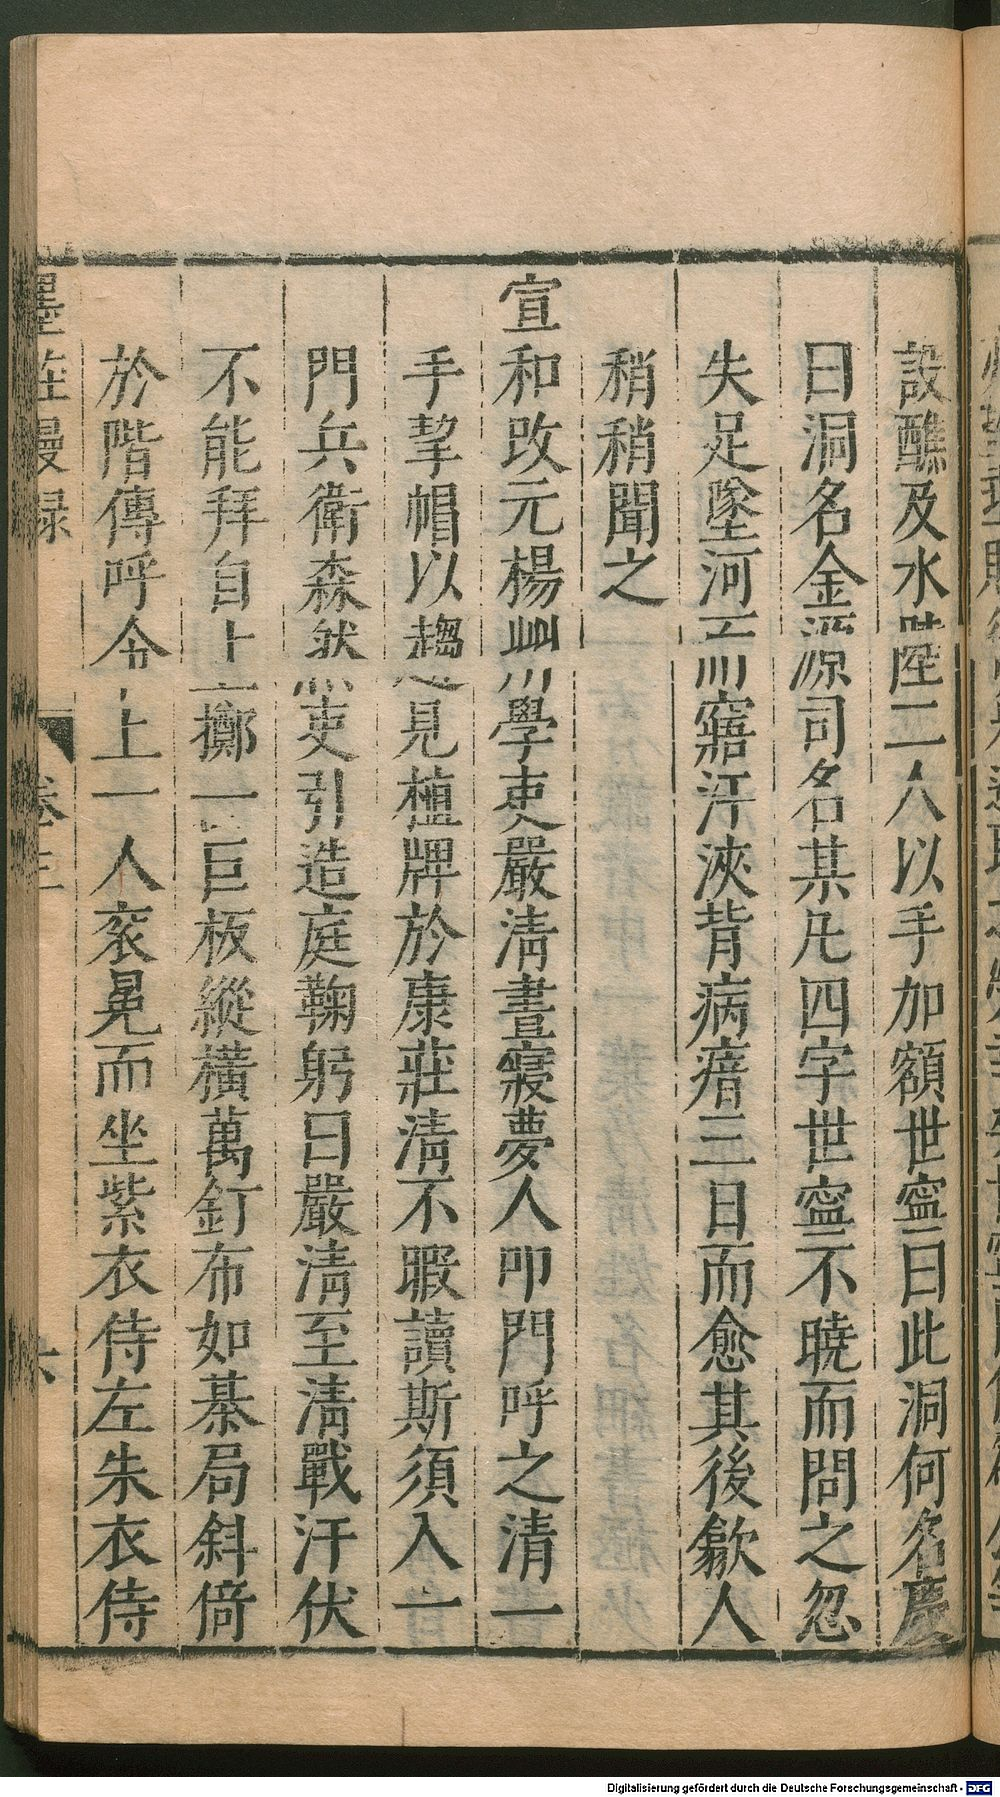 設醮及水陸二人以手加額世寧曰此洞何名慶
曰洞名金源司名某凡四字世寧不曉而問之忽
失足墜河而寤汗浹背病瘖三日而愈其後歙人
稍稍聞之
宣和改元楊州學吏嚴清晝寢夢人叩門呼之清一
手挈帽以趨見植牌於康莊清不暇讀斯須入一
門兵衛森然吏引造庭鞠躬曰嚴清至清戰汗伏
不能拜自上擲一巨板縱橫萬釘布如棊局斜倚
於階傳呼令上上一人袞冕而坐紫衣侍左朱衣侍
墨莊漫録
卷三
六
Digitalisierung gefördert durch die Deutsche Forschungsgemeinschaft - DFG